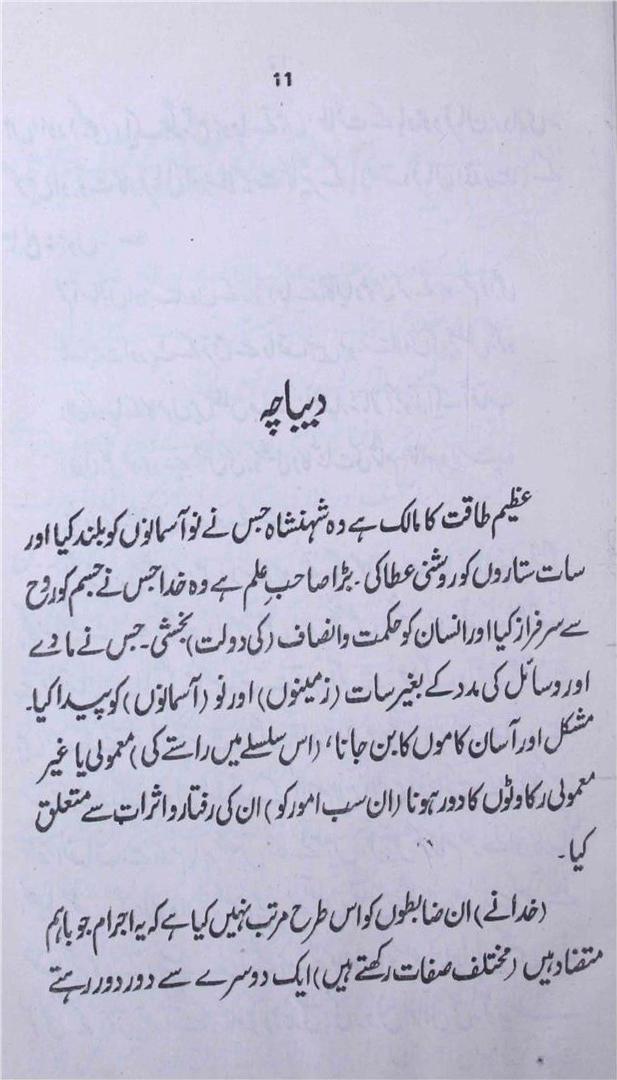 11
دیباچہ
عظیم طاقت کا مالک ہے وہ شہنشاہ جس نے نو آسمانوں کو بلند کیا اور
سات ستاروں کو روشنی عطا کی۔ بڑا صاحبِ علم ہے وہ خدا جس نے جسم کو روح
سے سرفراز کیا اور انسان کو حکمت و انصاف (کی دولت) بخشی۔ جس نے مادے
اور وسائل کی مدد کے بغیر سات (زمینوں) اور نو (آسمانوں) کو پیدا کیا۔
مشکل اور آسان کاموں کا بن جانا، (اس سلسلے میں راستے کی) معمولی یا غیر
معمولی رکاوٹوں کا دور ہونا (ان سب امور کو) ان کی رفتار و اثرات سے متعلق
کیا۔
(خدا نے) ان ضابطوں کو اس طرح مرتب نہیں کیا ہے کہ یہ اجرام جو باہم
متضاد ہیں (مختلف صفات رکھتے ہیں) ایک دوسرے سے دور دور رہتے